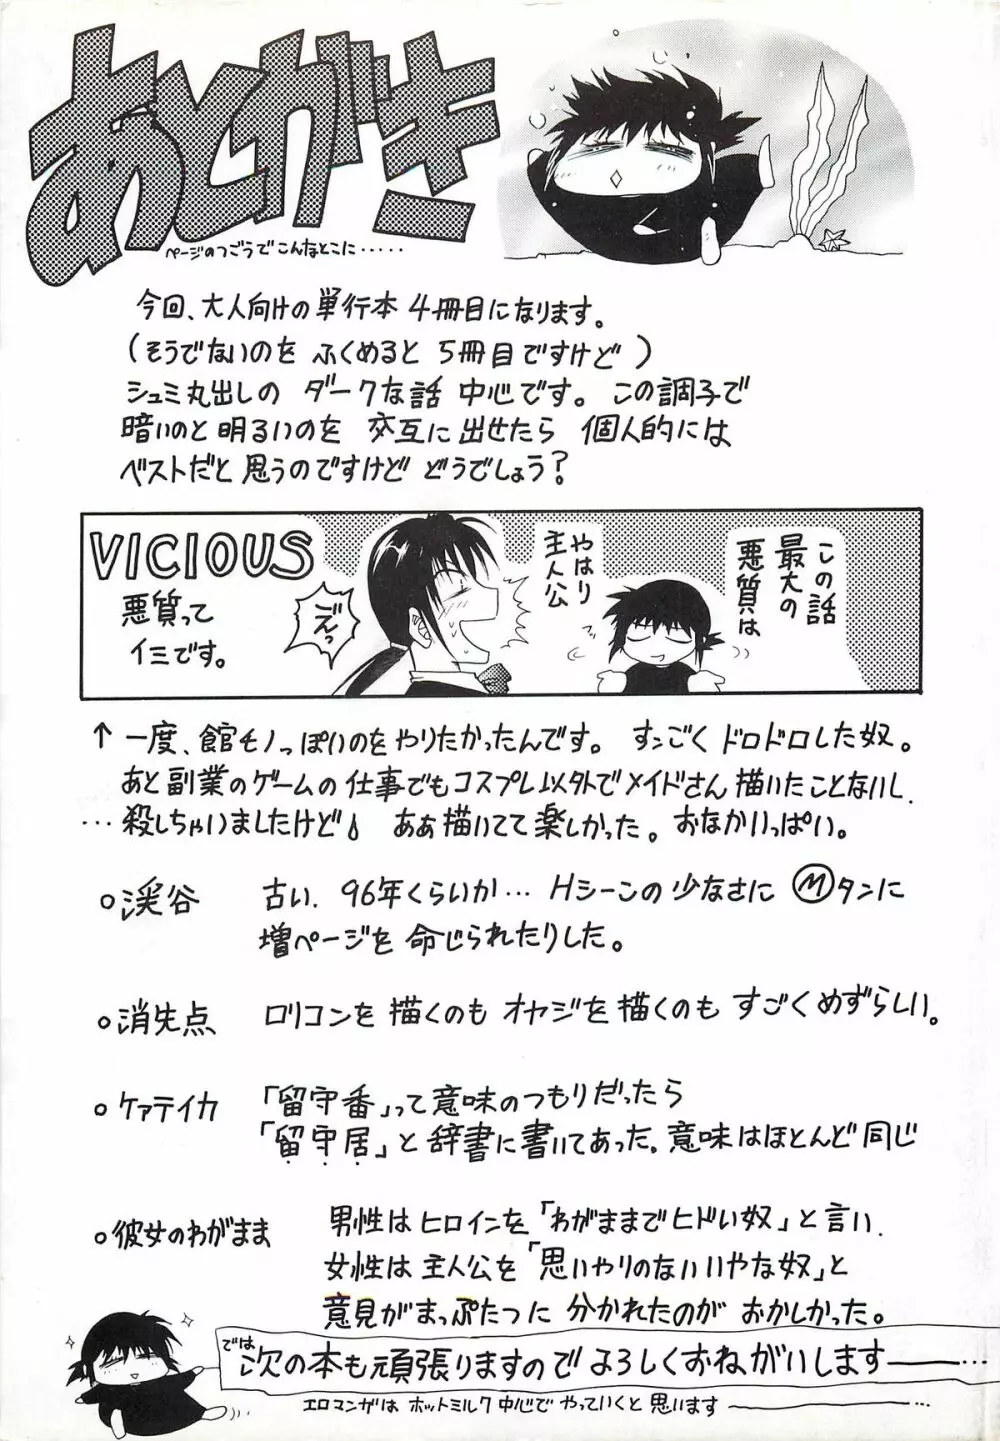 あとがき
ページのつごうでこんなとこに・・・・・
今回、大人向けの単行本 4冊目になります。
(そうでないのを ふくめると 5冊目ですけど)
シュミ丸出しの ダークな話 中心です。この調子で
暗いのと 明るいのを 交互に 出せたら 個人的には
ベストだと思うのですけど どうでしょう?
この話
最大の
悪質は
やはり
主人公
VICIOUS
悪質って
イミです。
ごえっ
↑ 一度、館モノっぽいのをやりたかったんです。すンごく ドロドロした奴。
あと副業のゲームの仕事でもコスプレ以外でメイドさん描いたことないし.
…殺しちゃいましたけど ああ描いてて楽しかった。おなかいっぱい。
○渓谷 古い. 96年くらいか… Hシーンの少なさに Ⓜタンに
増ページを 命じられたりした。
○消失点 ロリコンを描くのも オヤジを描くのも すごくめずらしい。
○ケァテイカ 「留守番」って意味のつもりだったら
「留守居」と辞書に書いてあった。意味はほとんど同じ
○彼女のわがまま 男性はヒロインを「わがままでヒドい奴」と言い.
女性は主人公を「思いやりのないいやな奴」と
意見がまっぷたつに 分かれたのが おかしかった。
では
次の本も頑張りますので よろしくおねがいします――…
エロマンガは ホットミルク中心で やっていくと 思います――…